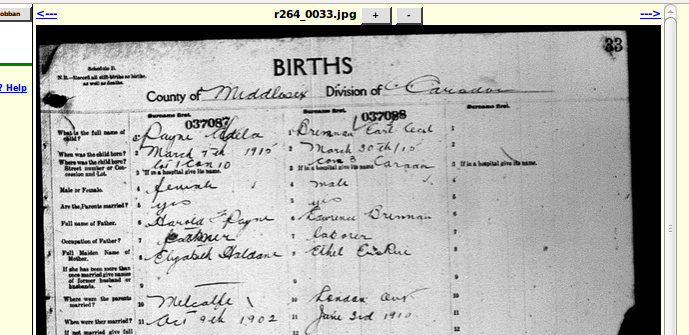 obban
<---
r264_0033.jpg
+
-
--->
? Help
33
Schedule B.
N.B.—Record all still-births as births, as well as deaths.
BIRTHS
County of Middlesex Division of Caradoc
Surname first. Surname first. Surname first.
037087 037088
What is the full name of child? 1 Payne Adela 1 Brennan Earl Cecil 1
When was the child born? 2 March 7th 1915 2 March 30th/15 2
Where was the child born? Street number or Concession and Lot. Lot 1 Con 10 Con 3 Caradoc
3 If in a hospital give its name. 3 If in a hospital give its name. 3 If in a hospital give its name.
Male or Female. 4 female 4 male 4
Are the Parents married? 5 yes 5 yes 5
Full name of Father. 6 Harold F Payne 6 Lawrence Brennan 6
Occupation of Father? 7 farmer 7 laborer 7
Full Maiden Name of Mother. 8 Elizabeth Haldane 8 Ethel Erskine 8
If she has been more than once married give names of former husband or husbands. 9 9 9
Where were the parents married? 10 Metcalfe 10 London Ont 10
When were they married? 11 Oct 9th 1902 11 June 3rd 1910 11
If not married give full 12